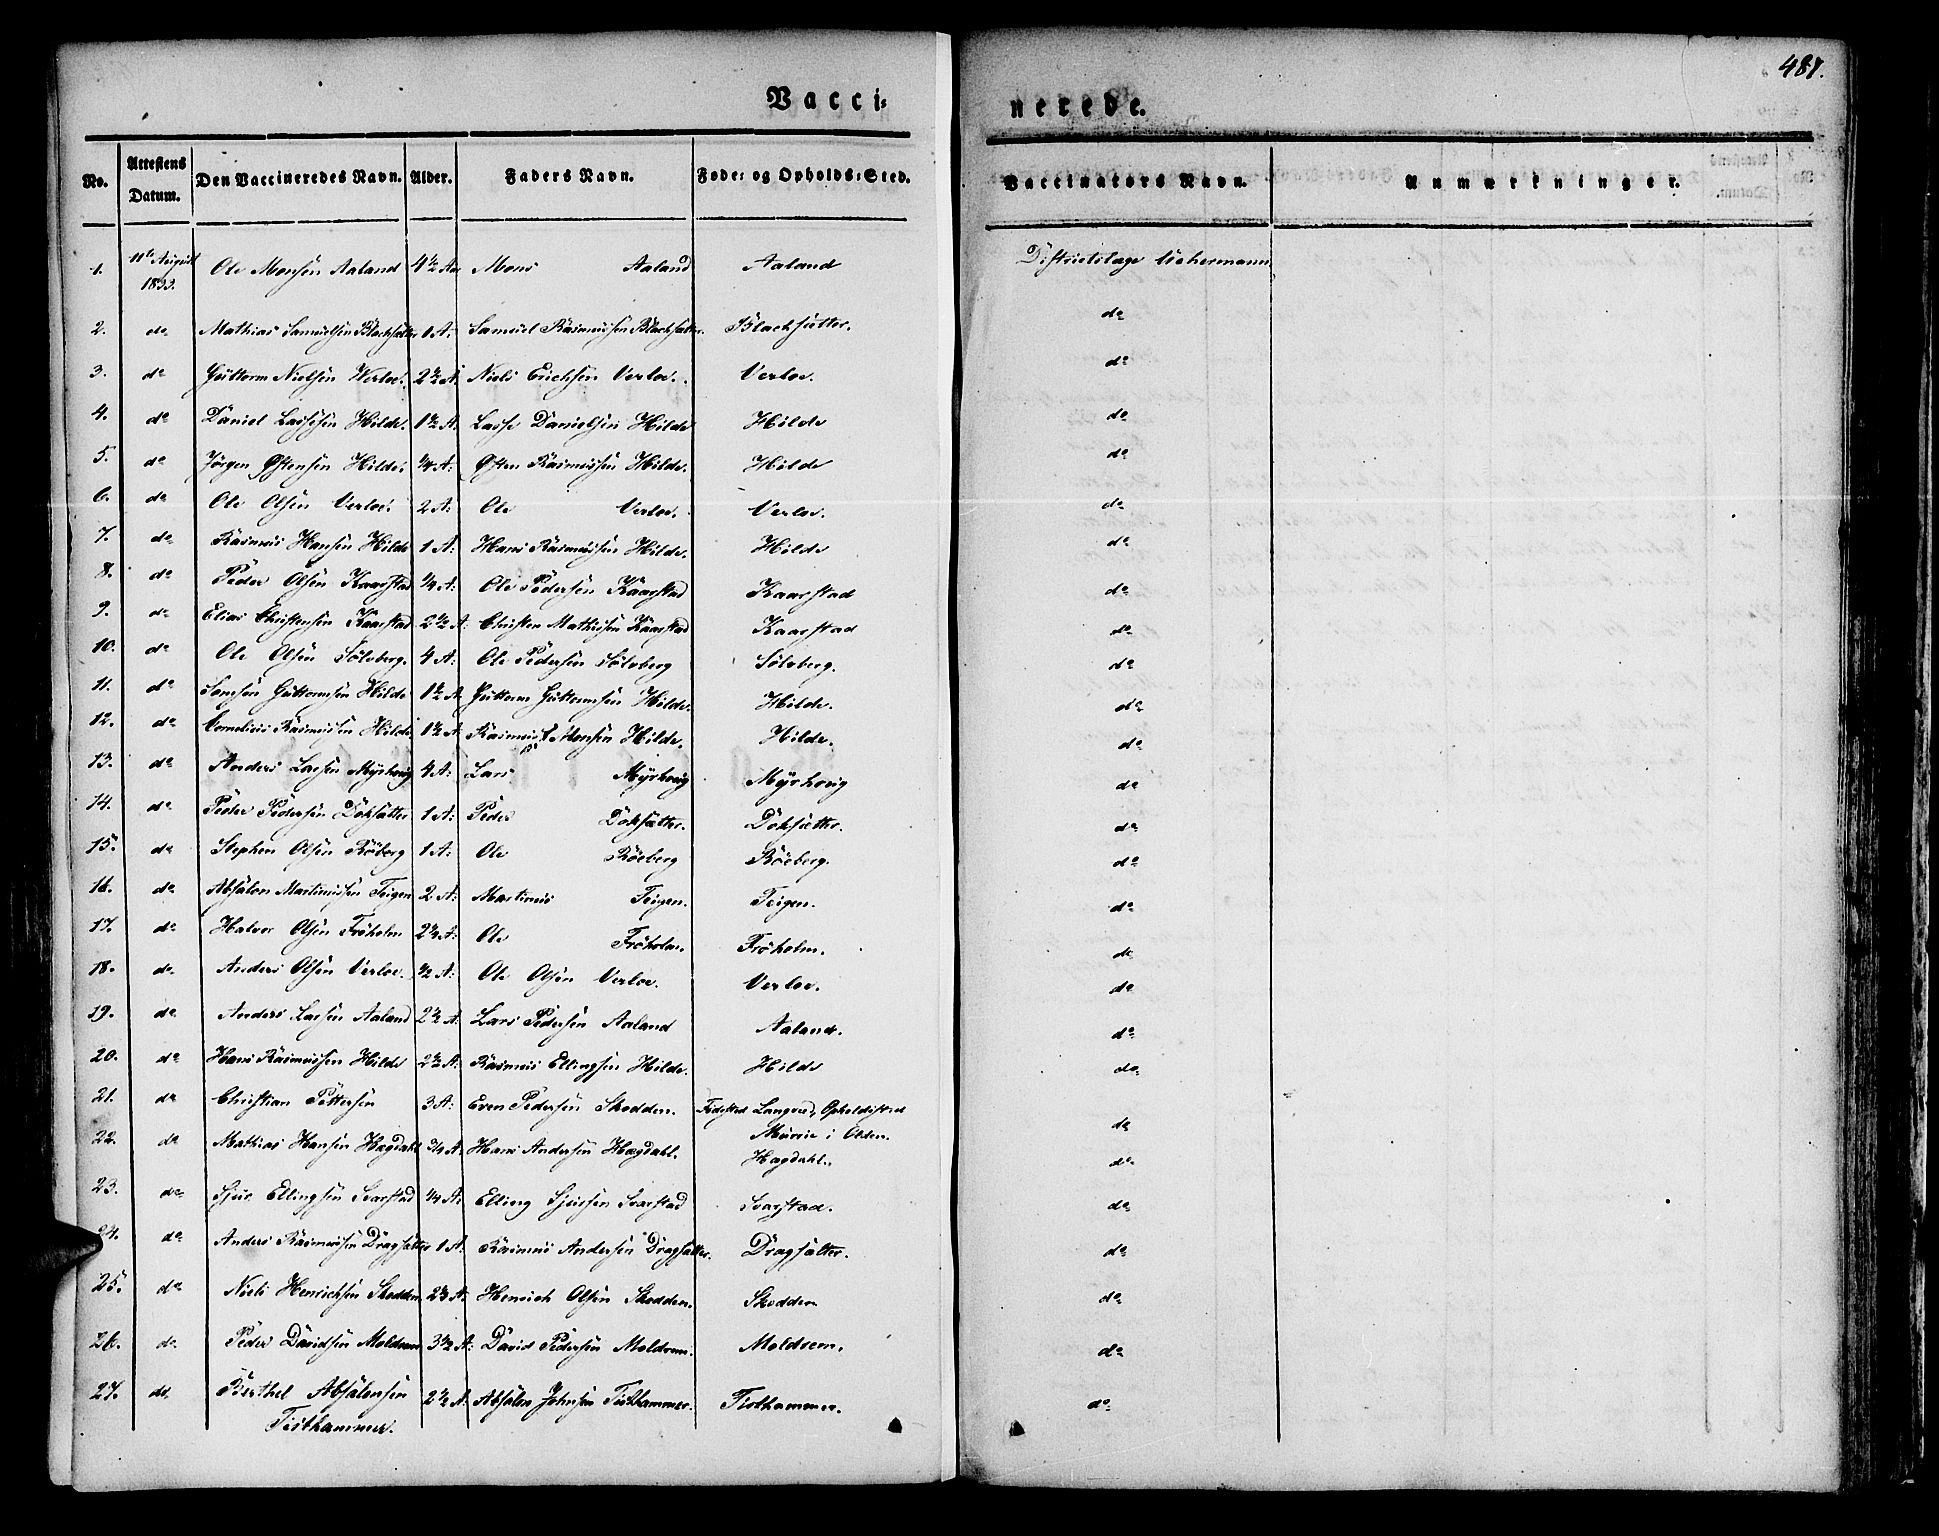 487.
Vacci=
nerede.
No. Attestens Datum. Den Vaccineredes Navn. Alder. Faders Navn. Føde= og Opholds=Sted. Vaccinators Navn. Anmærkninger.
1. 11te August 1833. Ole Monsen Aaland 4½ Aar Mons Aaland Aaland Districtslæge
2. do Mathias Samuelsen Blachsæter 1 A: Samuel Rasmussen Blachsæter. Blachsætter. do
3. do Guttorm Nielsen Verloe. 2½ A Niels Erichsen Verloe. Verloe. do
4. do Daniel Lassesen Hilde. 1½ A. Lasse Danielsen Hilde Hilde do
5. do Jørgen Østensen Hilde. ¼ A: Østen Rasmussen Hilde. Hilde do
6. do Ole Olsen Verloe. 2 A: Ole Verloe. Verloe. do
7. do Rasmus Hansen Hilde 1 A: Hans Rasmussen Hilde. Hilde do
8. do Peder Olsen Kaarstad ¼ A: Ole Pedersen Kaarstad Kaarstad do
9. do Elias Christensen Kaarstad 2½ A: Christen Mathissen Kaarstad Kaarstad do
10. do Ole Olsen Sölvberg. 4 A: Ole Pedersen Sölvberg Sölvberg. do
11. do Samsen Guttormsen Hilde 1½ A Guttorm Guttormsen Hilde. Hilde. do
12. do Cornelius Rasmussen Hilde 1½ A Rasmus Monsen Hilde. Hilde. do
13. do Anders Larsen Myrhvig 4 A: Lars Myrhvig Myrhvig do
14. do Peder Pedersen Döksætter 1 A: Peder Döksætter. Döksætter. do
15. do Stephen Olsen Röberg 1 A: Ole Röeberg Röeberg. do
16. do Absalon Martinussen Teigen 2 A: Martinus Teigen. Teigen. do
17. do Halvor Olsen Fröholm 2¼ A: Ole Fröholm. Fröholm. do
18. do Anders Olsen Verloe. ½ A: Ole Olsen Verloe. Verloe. do
19. do Anders Larsen Aaland 2½ A: Lars Pedersen Aaland Aaland. do
20. do Hans Rasmussen Hilde 2½ A: Rasmus Ellingsen Hilde. Hilde do
21. do Christian Pettersen 3 A: Even Pedersen Skodden. Fødested Langved, Opholdssted
Murrie i Olden. do
22. do Mathias Hansen Hagdahl ¾ A: Hans Andersen Hagdahl. Hagdahl. do
23. do Sjur Ellingsen Svarstad ¼ A: Elling Sjursen Svarstad Svarstad. do
24. do Anders Rasmussen Dragsæter 1 A: Rasmus Andersen Dragsæter. Dragsætter. do
25. do Niels Henrichsen Skodden 2½ A: Henrich Olsen Skodden. Skodden do
26. do Peder Davidsen Moldreem 3½ A: David Pedersen Moldreem. Moldreem. do
27. do Berthel Absalonsen
Tisthammer. 2½ A: Absalon Johnsen Tisthammer. Tisthammer. do